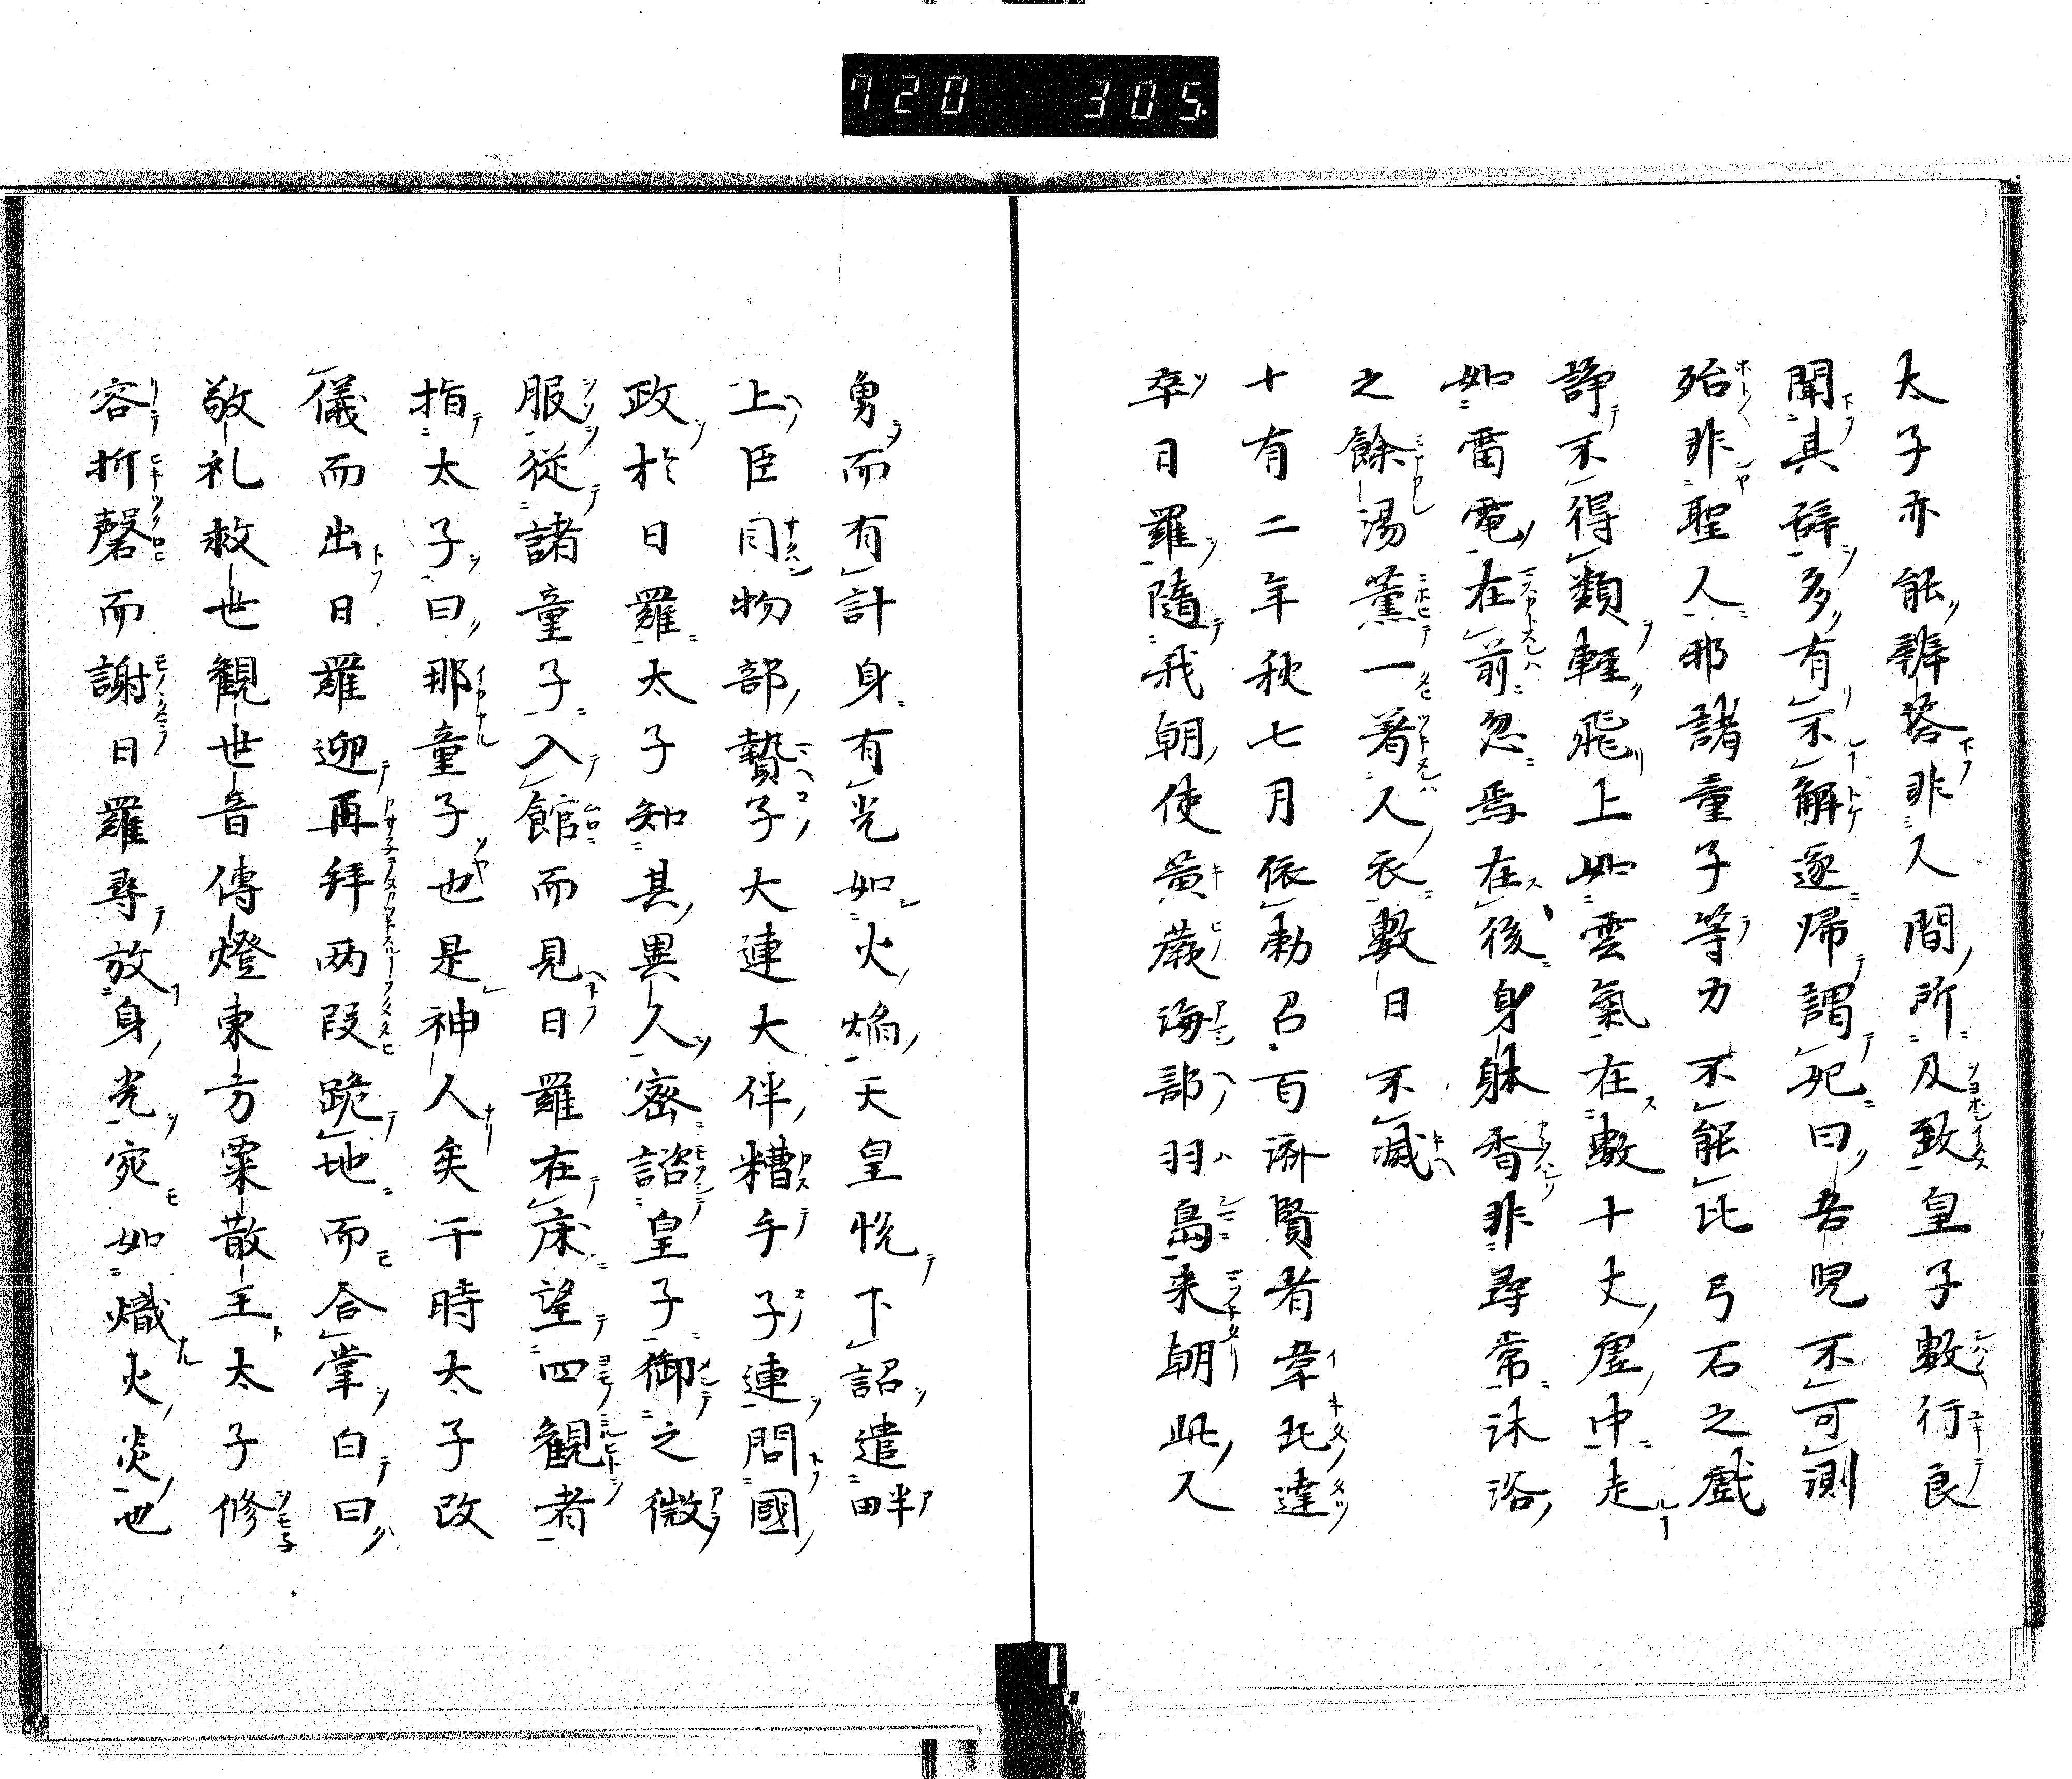 720 305.
太子亦能辨答非人間所及致皇子數行良
聞其辭多有不解遂帰謂妃曰吾児不可測
殆非聖人耶諸童子等力不能比弓石之戲
諍不得類軽飛上如雲氣在數十丈虚中走
如雷電在前忽焉在後身躰香非尋常沐浴
之餘湯薫一著人衣數日不滅
十有二年秋七月依勅召百済賢者葦北達
率日羅隨我朝使黄蕨海部羽島来朝此人
勇而有計身有光如火焔天皇悦下詔遣畔
上臣同物部贄子大連大伴糟手子連問國
政於日羅太子知其異人密諮皇子御之微
服従諸童子入館而見日羅在床望四観者
指太子曰那童子也是神人矣于時太子改
儀而出日羅迎再拜两段跪地而合掌白曰
敬礼救世観世音傳燈東方粟散王太子修
容折磬而謝日羅尋放身光宛如熾火炎也